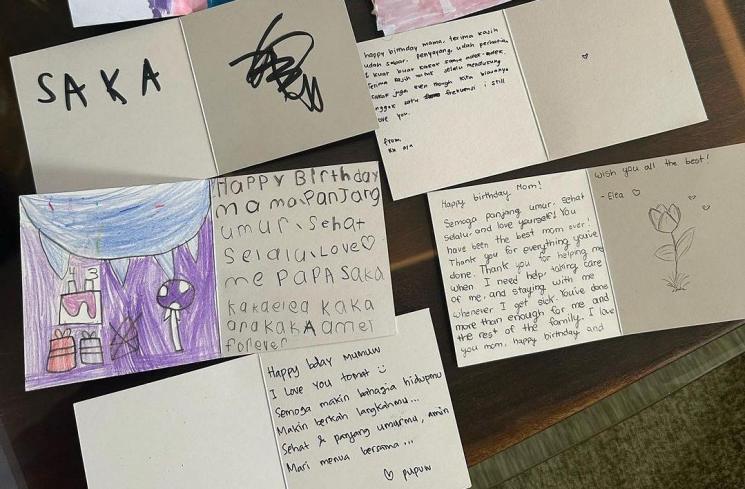 SAKA
happy birthday mama, terima kasih
udah sabar, penyayang, udah perhatian
I kuat buat kakak sama adek-adek.
Terima kasih untuk selalu mendukung
kakak juga even though kita biasanya
nggak satu frekuensi i still
love you.
from,
Happy Birthday
mama, Panjang
umur, Sehat
Selalu, Love
me PAPA SAKA
kakaelea KAKA
arakakA amer
forever
4 3
Happy birthday, Mom!
Semoga panjang umur, sehat
selalu, and love yourself! You
have been the best mom ever!
Thank you for everything you've
done. Thank you for helping me
when I need help, taking care
of me, and staying with me
whenever I get sick. You've done
more than enough for me and
the rest of the family. I love
you mom, happy birthday and
wish you all the best!
- Elea
Happy bday mumuw
I love You tomat
Semoga makin bahagia hidupmu
Makin berkah langkahmu...
Sehat & panjang umurmu, amin
Mari menua bersama...
pupuw